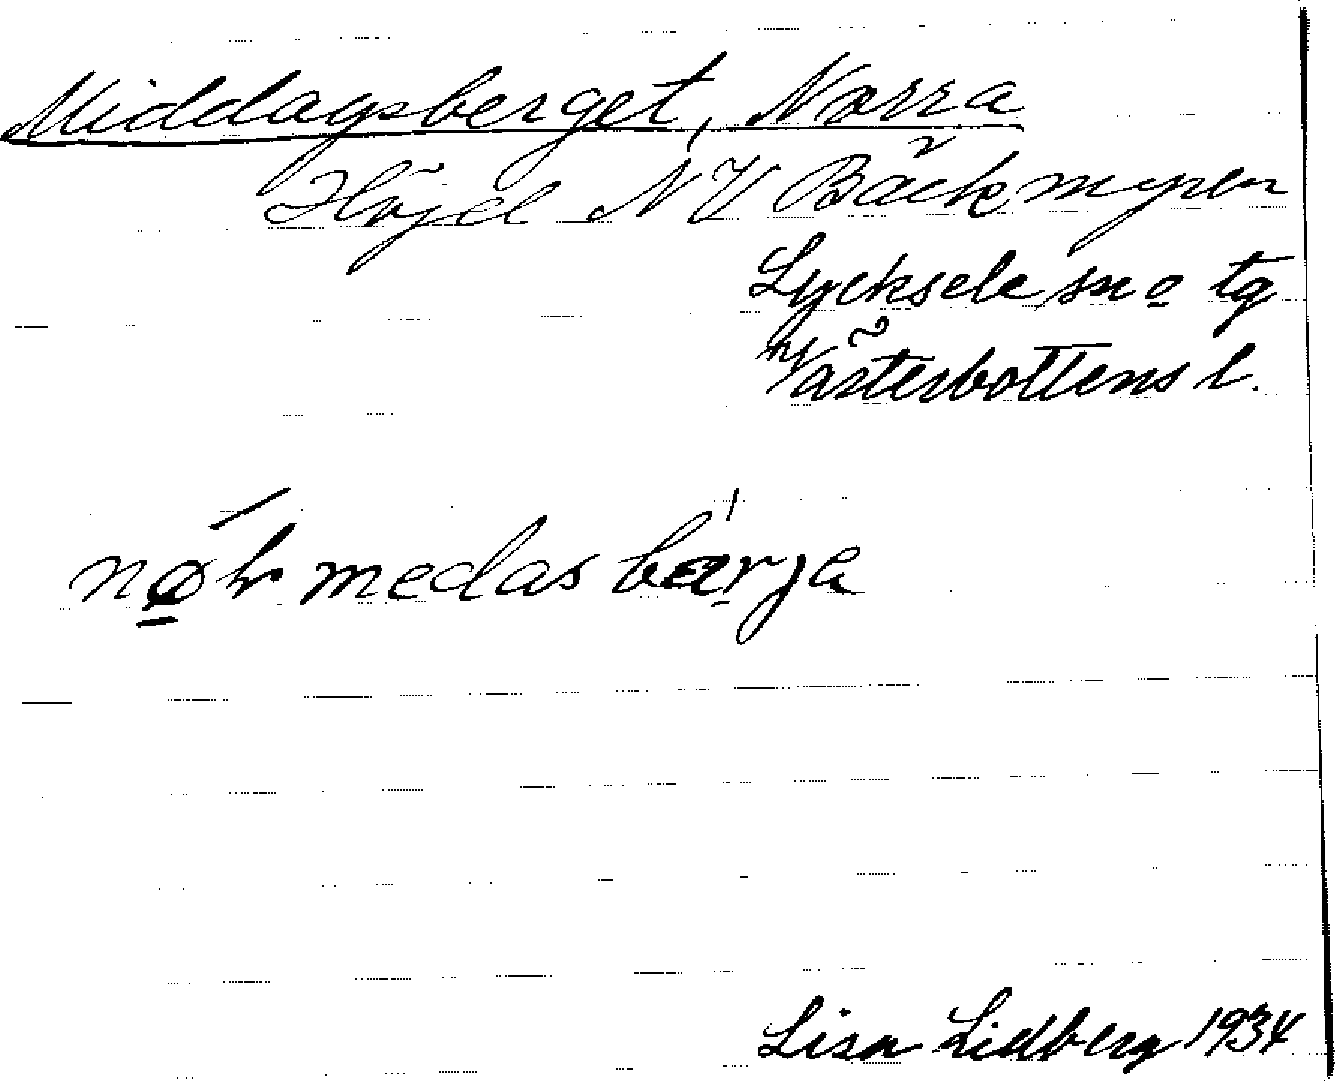 Middagsberget, Norra
Höjd NV Bäckmyren
Lycksele sn o tg
Västerbottens l.
nør medas bærje
Lisa Lidberg 1934